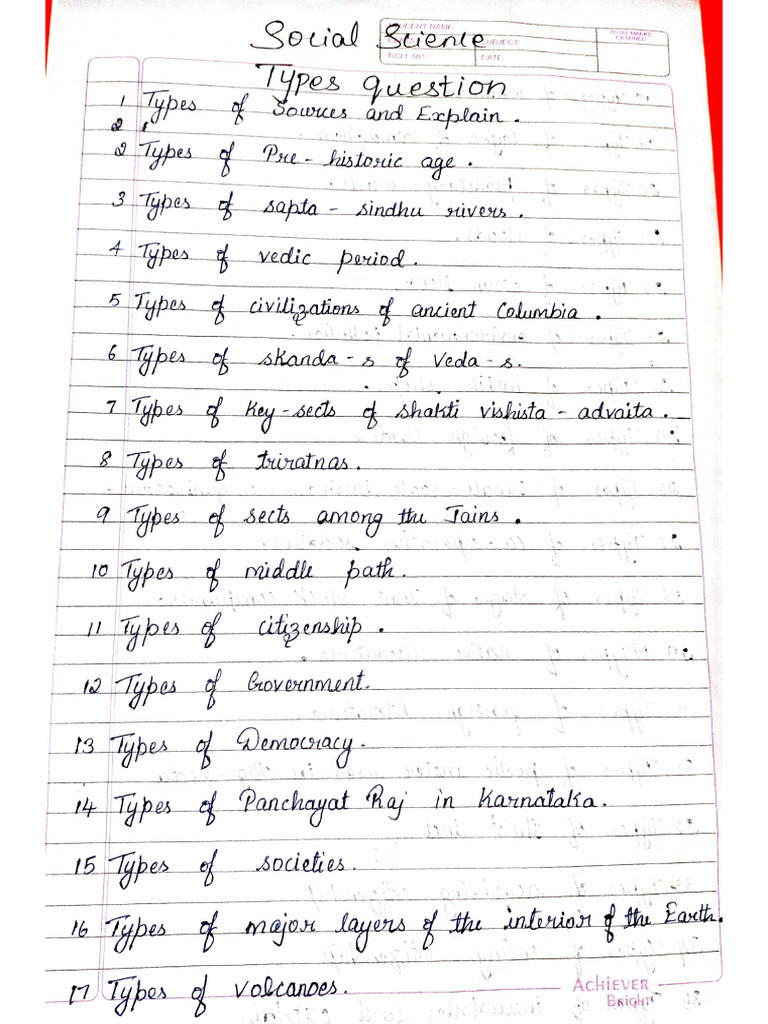 Social Science
STUDENT NAME
TOTAL MARKS OBTAINED
SUBJECT
ROLL NO.
DATE
Types question
1 Types of Sources and Explain.
2
2 Types of Pre-historic age.
3 Types of sapta-sindhu rivers.
4 Types of vedic period.
5 Types of civilizations of ancient Columbia.
6 Types of skanda-s of Veda-s.
7 Types of key-sects of shakti vishista-advaita.
8 Types of triratnas.
9 Types of sects among the Jains.
10 Types of middle path.
11 Types of citizenship.
12 Types of Government.
13 Types of Democracy.
14 Types of Panchayat Raj in Karnataka.
15 Types of societies.
16 Types of major layers of the interior of the Earth.
17 Types of volcanoes.
ACHIEVER
Bright